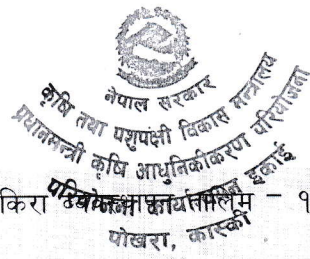 नेपाल सरकार
कृषि तथा पशुपंक्षी विकास मन्त्रालय
प्रधानमन्त्री कृषि आधुनिकीकरण परियोजना
परियोजना कार्यान्वयन इकाई
किरा व्यवस्थापन तालिम - १
पोखरा, कास्की